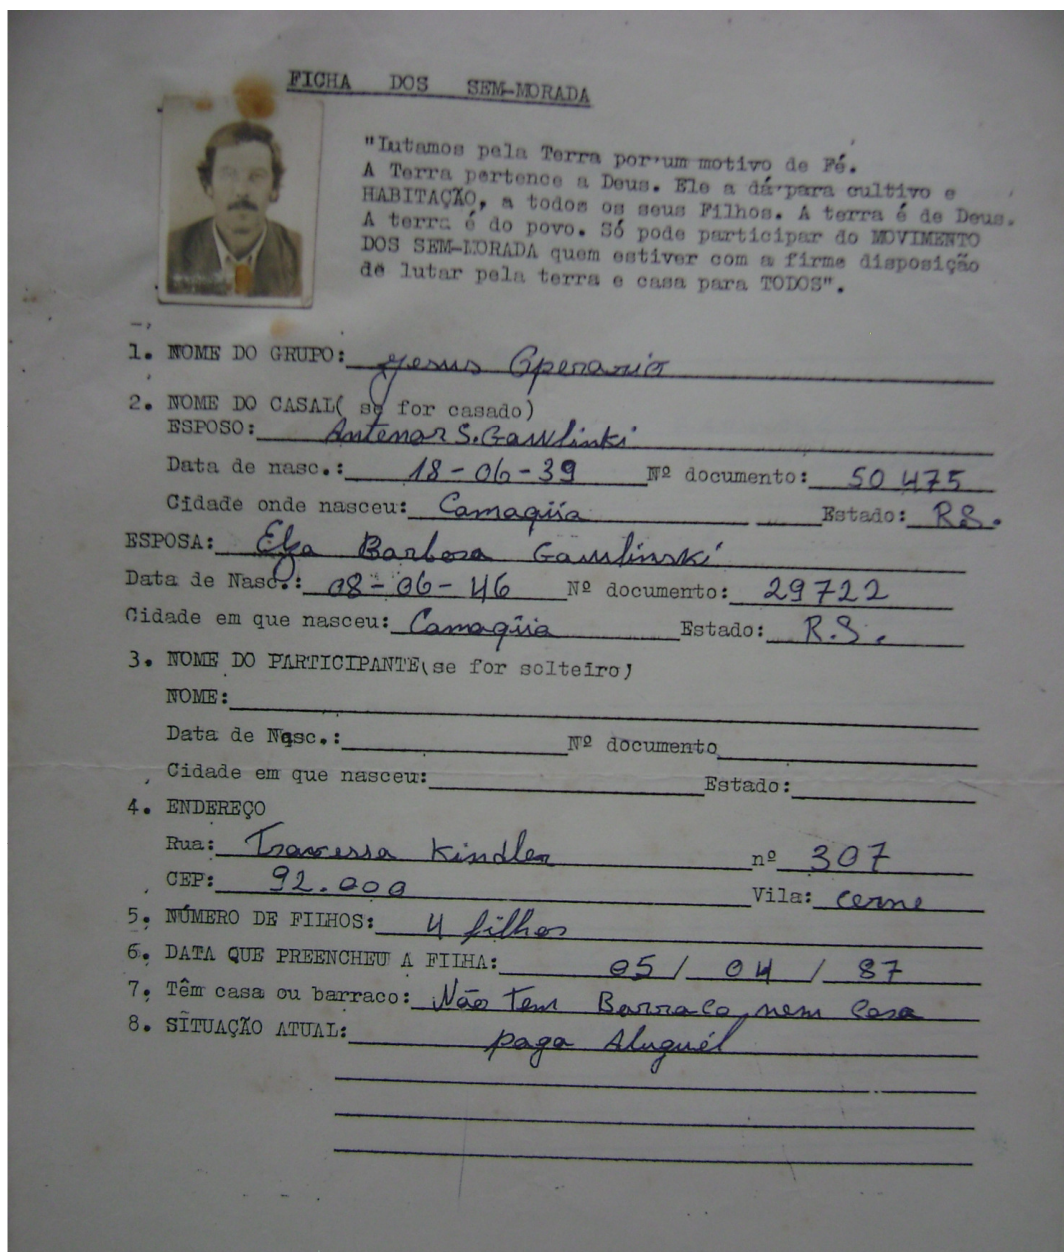 FICHA DOS SEM-MORADA
"Lutamos pela Terra por um motivo de Fé.
A Terra pertence a Deus. Ele a dá para cultivo e
HABITAÇÃO, a todos os seus Filhos. A terra é de Deus.
A terra é do povo. Só pode participar do MOVIMENTO
DOS SEM-MORADA quem estiver com a firme disposição
de lutar pela terra e casa para TODOS".
1. NOME DO GRUPO: Jesus Operario
2. NOME DO CASAL( se for casado)
ESPOSO: Antenor S. Gawlinki
Data de nasc.: 18-06-39 Nº documento: 50 475
Cidade onde nasceu: Camaqüa Estado: RS.
ESPOSA: Elza Barbosa Gawlinski
Data de Nasc.: 08-06-46 Nº documento: 29722
Cidade em que nasceu: Camaqüa Estado: R.S.
3. NOME DO PARTICIPANTE(se for solteiro)
NOME:
Data de Nasc.: Nº documento
Cidade em que nasceu: Estado:
4. ENDEREÇO
Rua: Travessa Kindler nº 307
CEP: 92.000 Vila: Cerne
5. NÚMERO DE FILHOS: 4 filhos
6. DATA QUE PREENCHEU A FIIHA: 05/ 04 / 87
7. Têm casa ou barraco: Não tem Barraco, nem Casa
8. SITUAÇÃO ATUAL: paga Aluguél